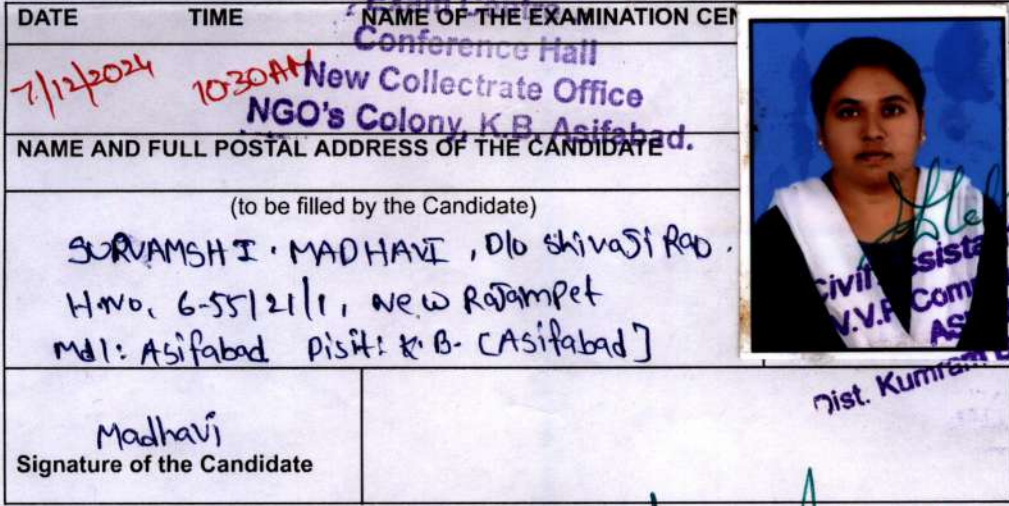 DATE TIME NAME OF THE EXAMINATION CEN
? Exam Centre
Conference Hall
7/12/2024 10:30AM New Collectrate Office
NGO's Colony, K.B. Asifabad.
NAME AND FULL POSTAL ADDRESS OF THE CANDIDATE
(to be filled by the Candidate)
SURVAMSHI. MADHAVI, D/o Shivaji Rao.
H.No. 6-55/21/1, New Rajampet
Mdl: Asifabad Disit: K.B. [Asifabad]
Civil Assista
V.V.P Com
As
Dist. Kumram
Madhavi
Signature of the Candidate